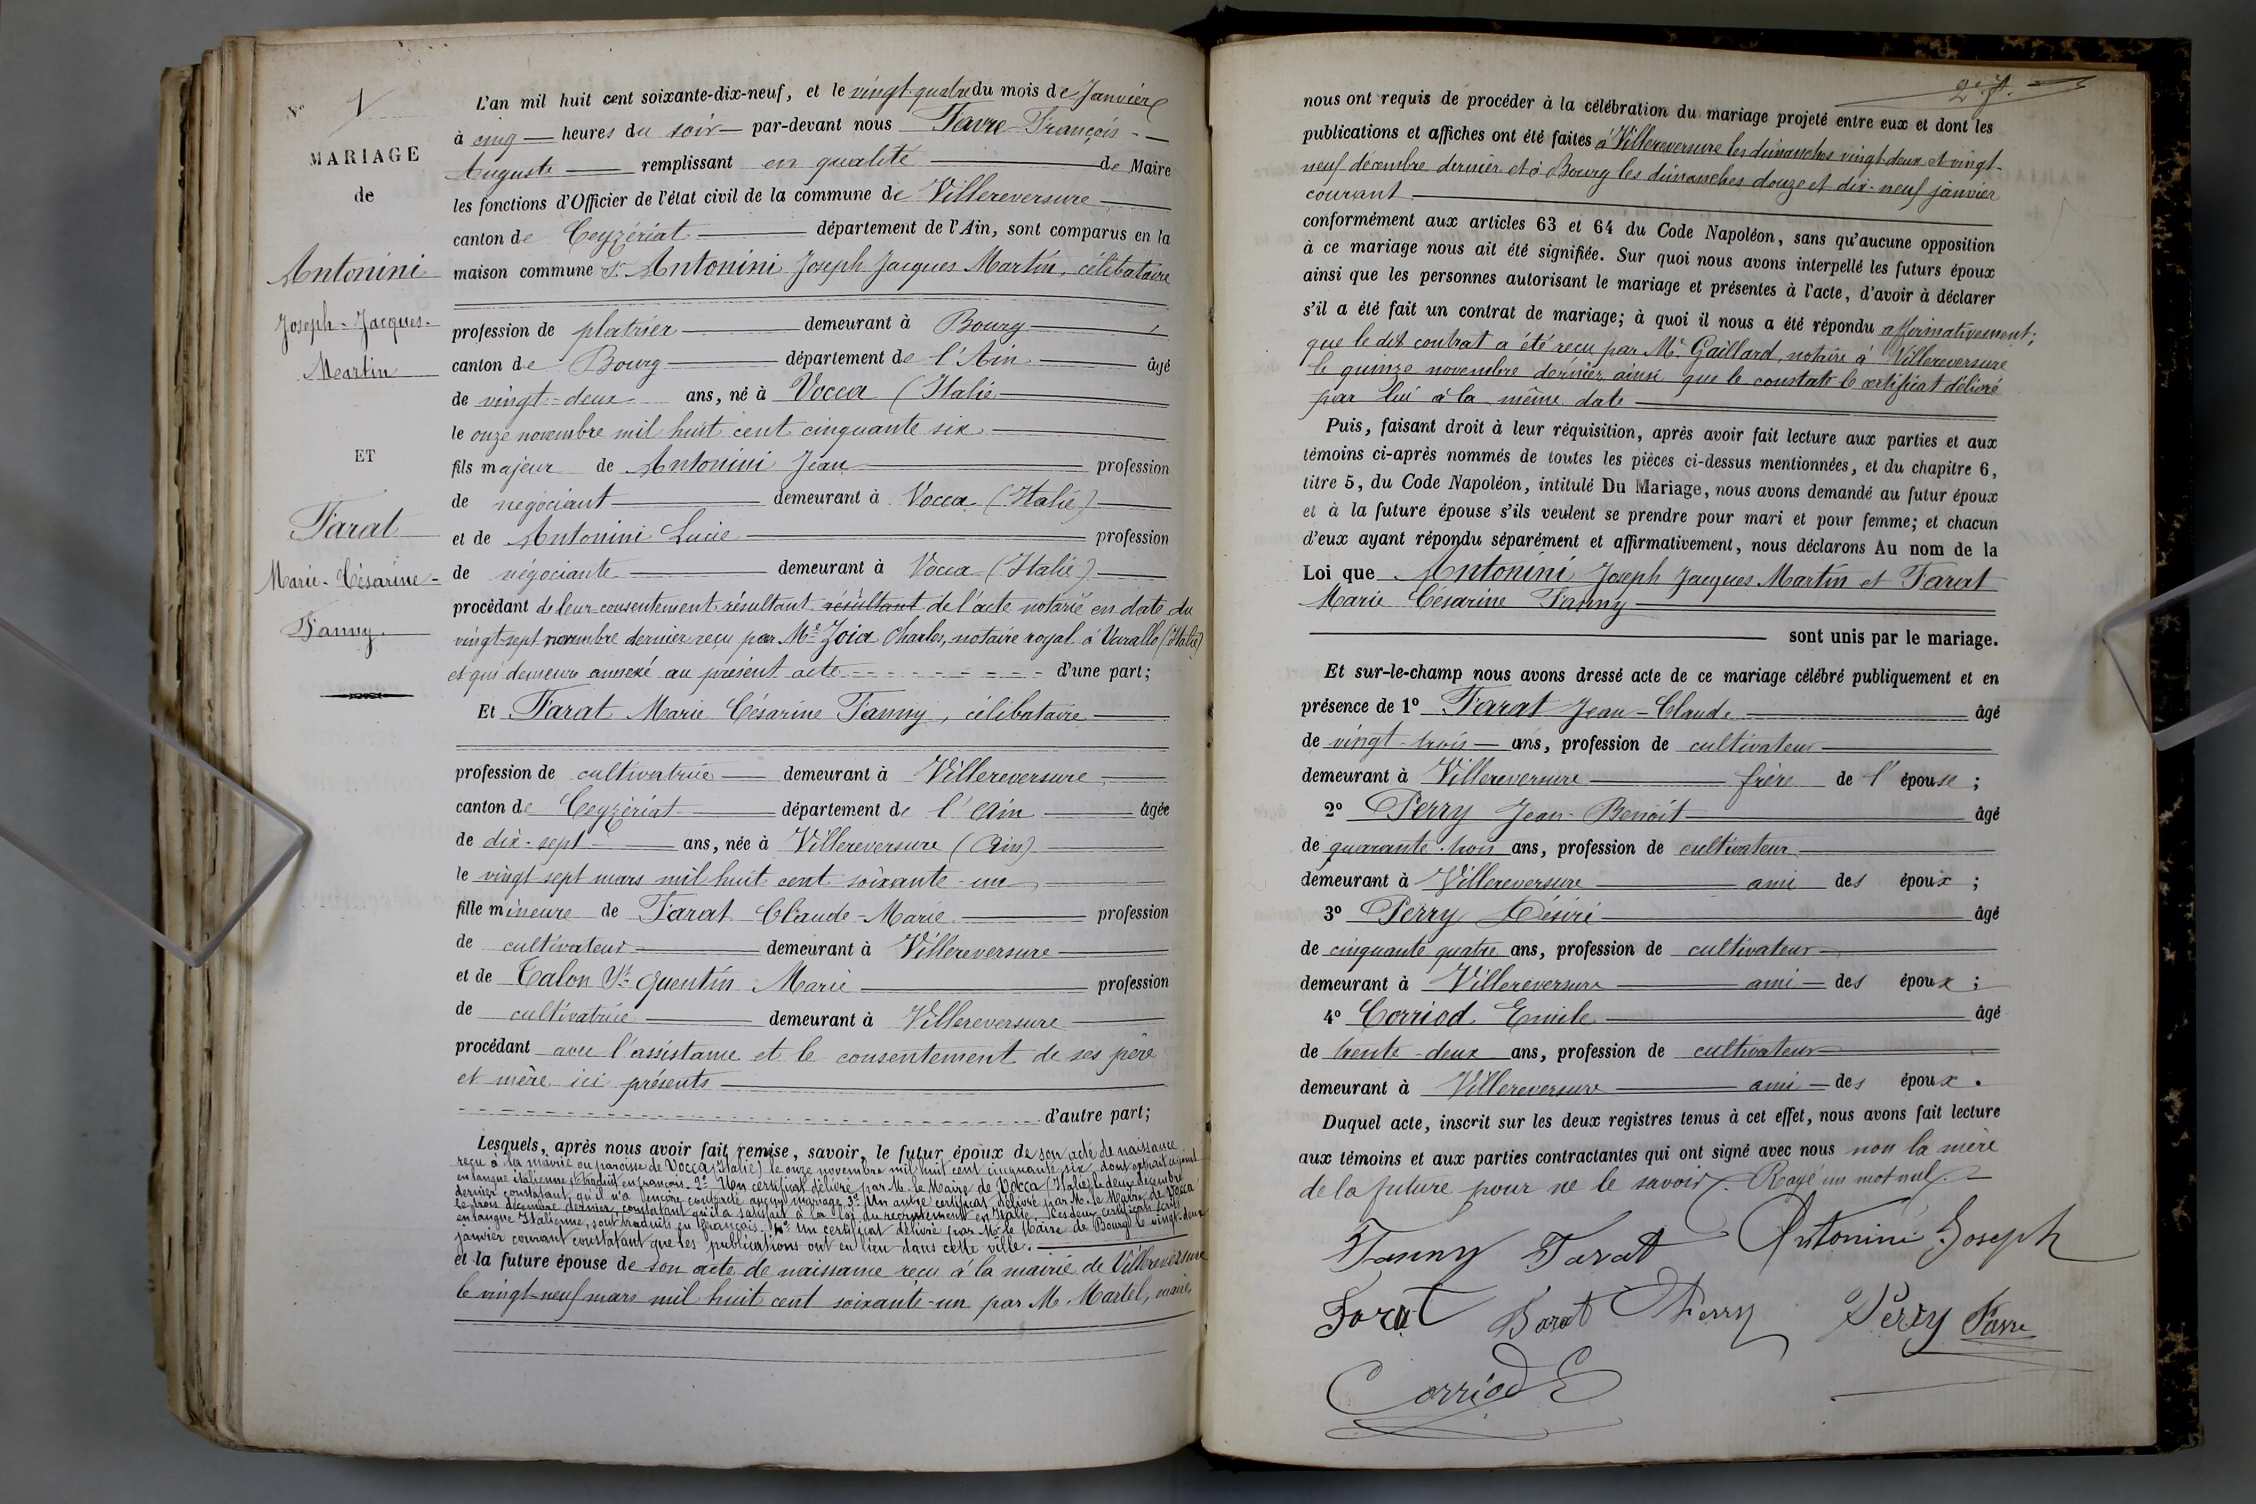 N° 1
MARIAGE
de
Antonini
Joseph-Jacques-
Martin
ET
Farat
Marie-Césarine-
Fanny
L'an mil huit cent soixante-dix-neuf, et le vingt-quatre du mois de Janvier
à cinq heures du soir par-devant nous Favre François-
Auguste remplissant en qualité de Maire
les fonctions d'Officier de l'état civil de la commune de Villereversure
canton de Ceyzériat département de l'Ain, sont comparus en la
maison commune Sr. Antonini Joseph Jacques Martin, célibataire
profession de platrier demeurant à Bourg
canton de Bourg département de l'Ain âgé
de vingt-deux ans, né à Vocca (Italie
le onze novembre mil huit cent cinquante six
fils majeur de Antonini Jean profession
de négociant demeurant à Vocca (Italie)
et de Antonini Lucie profession
de négociante demeurant à Vocca (Italie)
procédant de leur consentement résultant résultant de l'acte notarié en date du
vingt-sept novembre dernier reçu par Me Joia Charles, notaire royal à Varallo (Italie)
et qui demeure annexé au présent acte d'une part;
Et Farat Marie Césarine Fanny, célibataire
profession de cultivatrice demeurant à Villereversure
canton de Ceyzériat département de l'Ain âgée
de dix-sept ans, née à Villereversure (Ain)
le vingt sept mars mil huit cent soixante-un
fille mineure de Farat Claude-Marie profession
de cultivateur demeurant à Villereversure
et de Calon St. Quentin Marie profession
de cultivatrice demeurant à Villereversure
procédant avec l'assistance et le consentement de ses père
et mère ici présents
d'autre part;
Lesquels, après nous avoir fait remise, savoir, le futur époux de son acte de naissance
reçu à la mairie ou paroisse de Vocca (Italie) le onze novembre mil huit cent cinquante six, dont extrait
en langue italienne et traduit en français. 2° Un certificat délivré par M. le Maire de Vocca (Italie) le deux décembre
dernier constatant qu'il n'a encore contracté aucun mariage. 3° Un autre certificat délivré par M. le Maire de Vocca
le trois décembre dernier, constatant qu'il a satisfait à la loi du recrutement en Italie. Ces deux certificats écrits
en langue Italienne, sont traduits en français. 4° Un certificat délivré par Mr le Maire de Bourg le vingt-deux
janvier courant constatant que les publications ont eu lieu dans cette ville.
et la future épouse de son acte de naissance reçu à la mairie de Villereversure
le vingt-neuf mars mil huit cent soixante-un par M. Martel, maire
nous ont requis de procéder à la célébration du mariage projeté entre eux et dont les
publications et affiches ont été faites à Villereversure les dimanches vingt-deux et vingt-
neuf décembre dernier et à Bourg les dimanches douze et dix-neuf janvier
courant
conformément aux articles 63 et 64 du Code Napoléon, sans qu'aucune opposition
à ce mariage nous ait été signifiée. Sur quoi nous avons interpellé les futurs époux
ainsi que les personnes autorisant le mariage et présentes à l'acte, d'avoir à déclarer
s'il a été fait un contrat de mariage; à quoi il nous a été répondu affirmativement;
que le dit contrat a été reçu par Me Gaillard, notaire à Villereversure
le quinze novembre dernier, ainsi que le constate le certificat délivré
par lui à la même date
Puis, faisant droit à leur réquisition, après avoir fait lecture aux parties et aux
témoins ci-après nommés de toutes les pièces ci-dessus mentionnées, et du chapitre 6,
titre 5, du Code Napoléon, intitulé Du Mariage, nous avons demandé au futur époux
et à la future épouse s'ils veulent se prendre pour mari et pour femme; et chacun
d'eux ayant répondu séparément et affirmativement, nous déclarons Au nom de la
Loi que Antonini Joseph Jacques Martin et Farat
Marie Cesarine Fanny
sont unis par le mariage.
Et sur-le-champ nous avons dressé acte de ce mariage célébré publiquement et en
présence de 1° Farat Jean-Claude âgé
de vingt-trois ans, profession de cultivateur
demeurant à Villereversure frère de l'épouse;
2° Perry Jean-Benoît âgé
de quarante-trois ans, profession de cultivateur
demeurant à Villereversure ami des époux;
3° Perry Désiré âgé
de cinquante quatre ans, profession de cultivateur
demeurant à Villereversure ami des époux;
4° Corriod Emile âgé
de trente-deux ans, profession de cultivateur
demeurant à Villereversure ami des époux.
Duquel acte, inscrit sur les deux registres tenus à cet effet, nous avons fait lecture
aux témoins et aux parties contractantes qui ont signé avec nous non la mère
de la future pour ne le savoir. Rayé un mot nul.
Fanny Farat Antonini Joseph
Farat Farat Perry Perry Favre
Corriod E